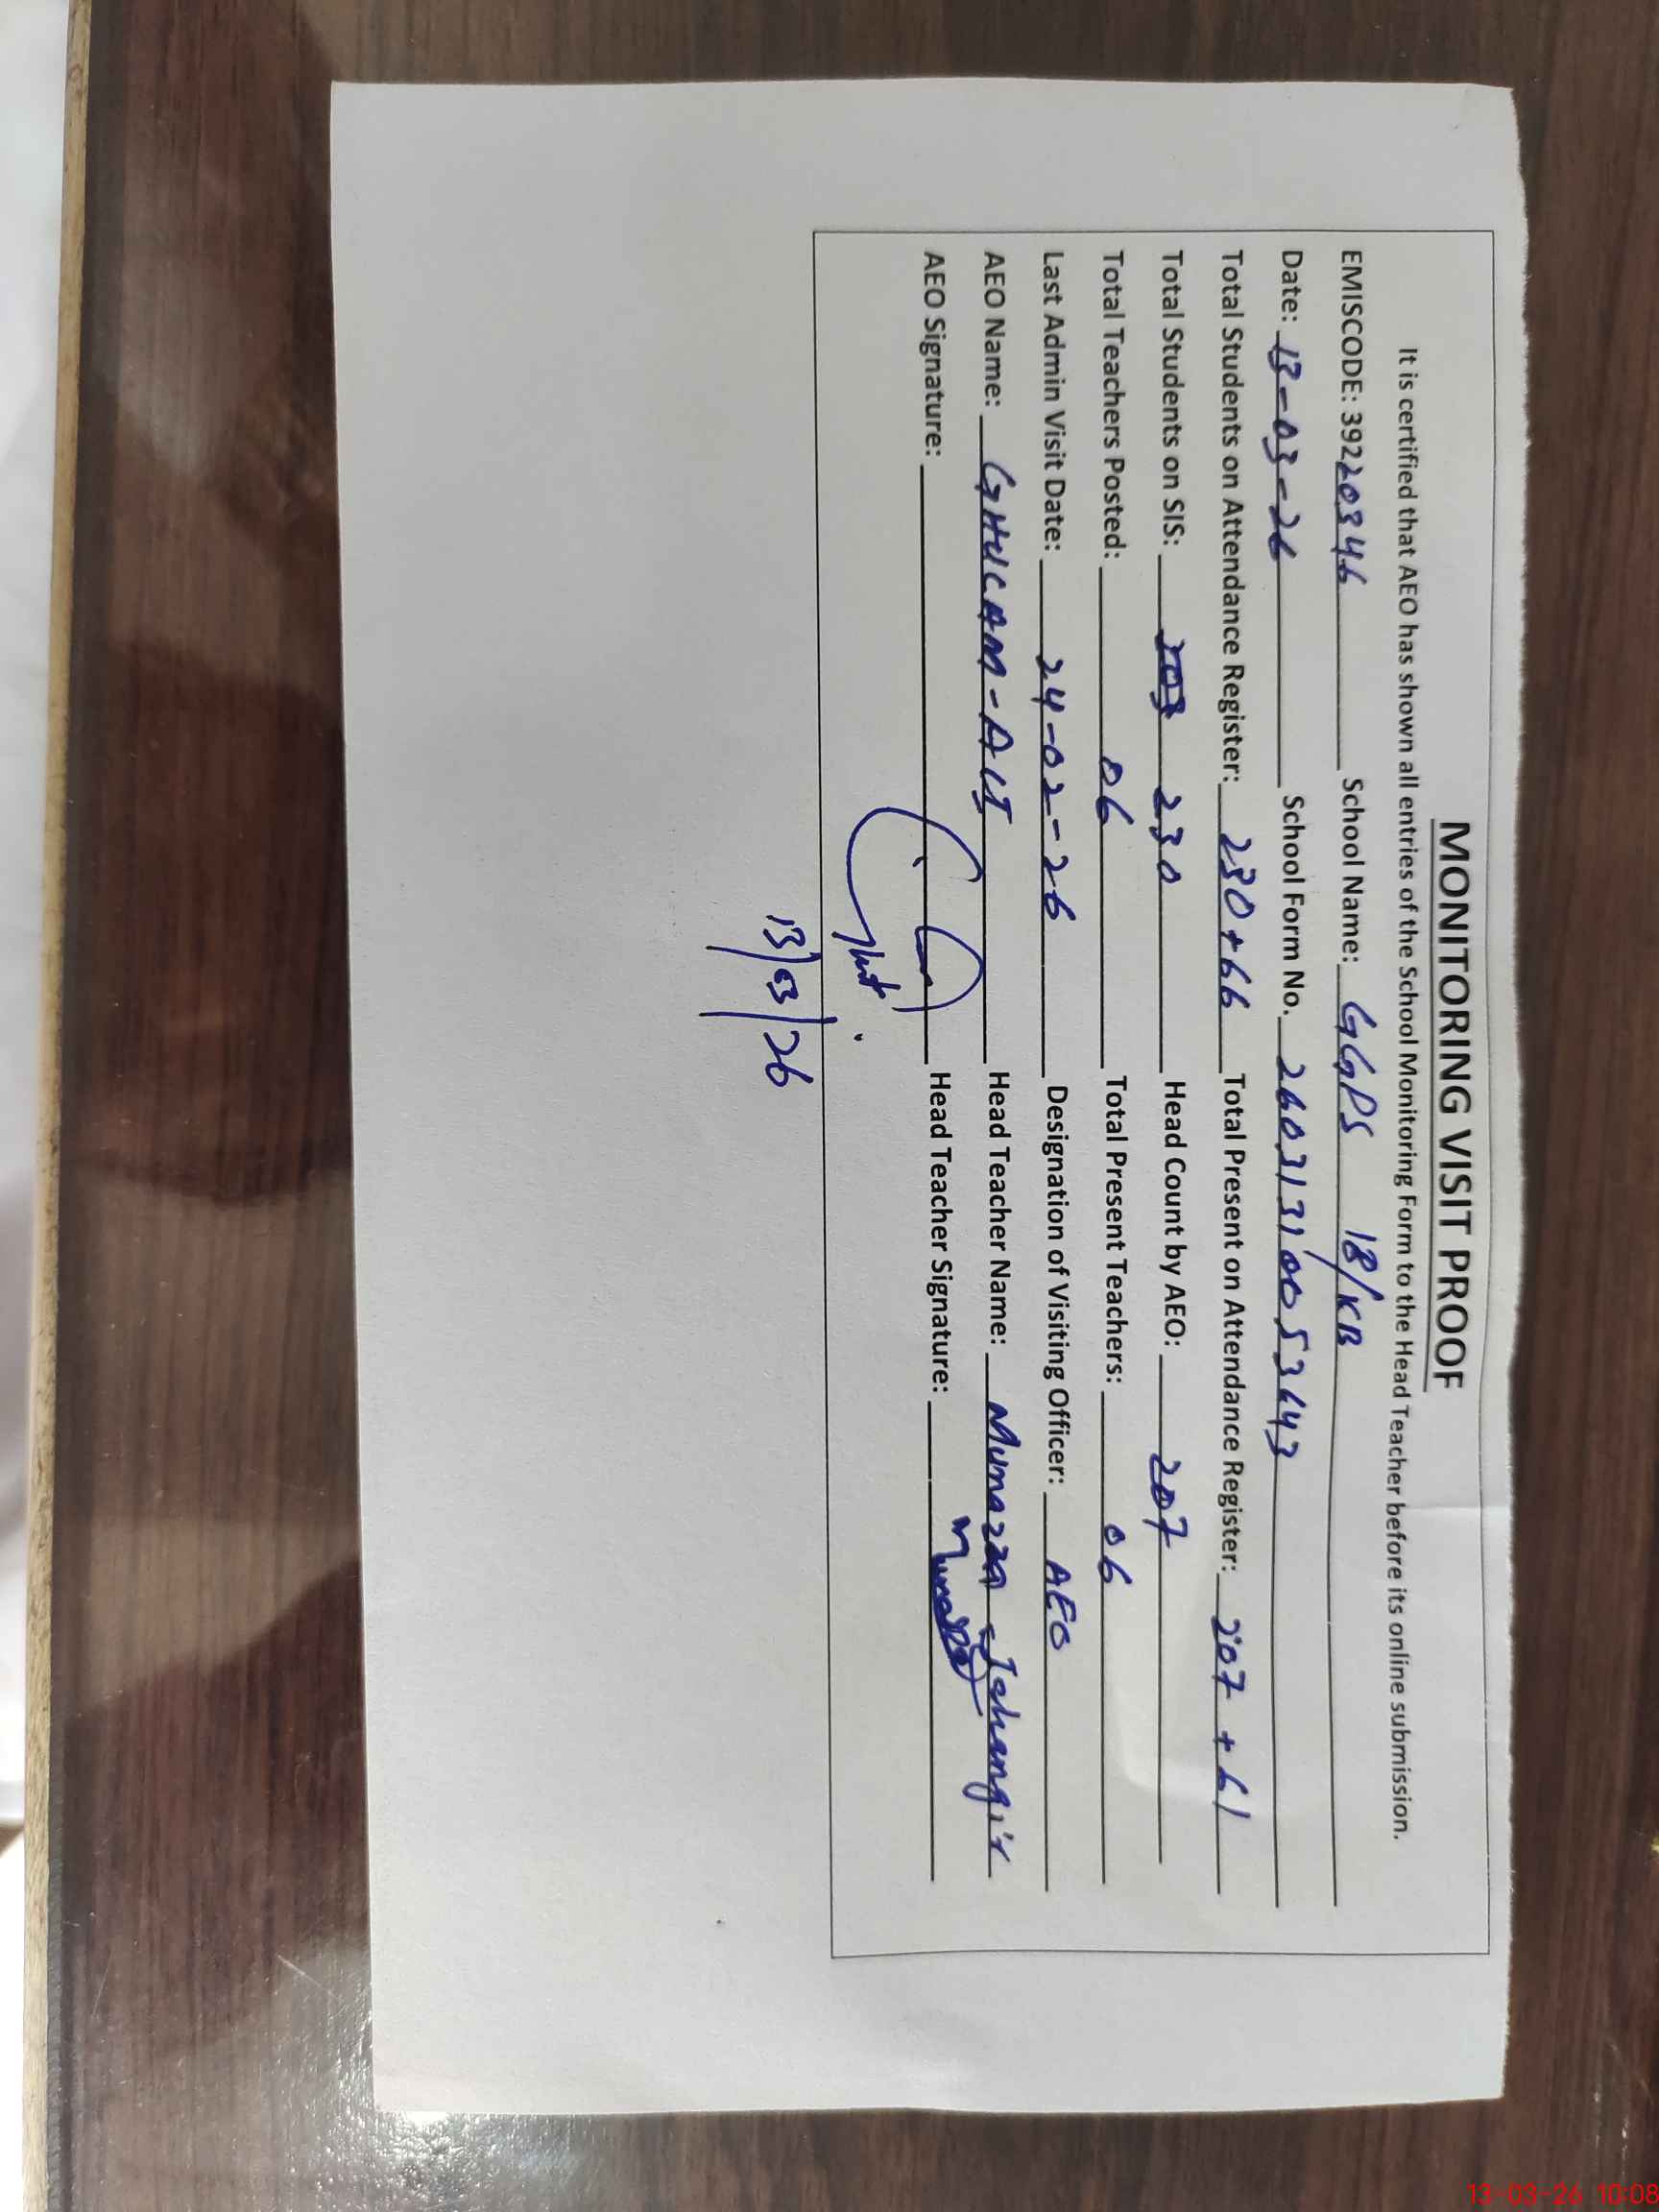 MONITORING VISIT PROOF
It is certified that AEO has shown all entries of the School Monitoring Form to the Head Teacher before its online submission.
EMISCODE: 39220346 School Name: GGPS 18/KB
Date: 13-03-26 School Form No. 26031310053643
Total Students on Attendance Register: 230+66 Total Present on Attendance Register: 207 + 61
Total Students on SIS: 203 230 Head Count by AEO: 207
Total Teachers Posted: 06 Total Present Teachers: 06
Last Admin Visit Date: 24-02-26 Designation of Visiting Officer: AEO
AEO Name: GHULAM-ALI Head Teacher Name: Mumazza Jehangir
AEO Signature: Head Teacher Signature: Mumazza
13/03/26
13-03-26 10:08